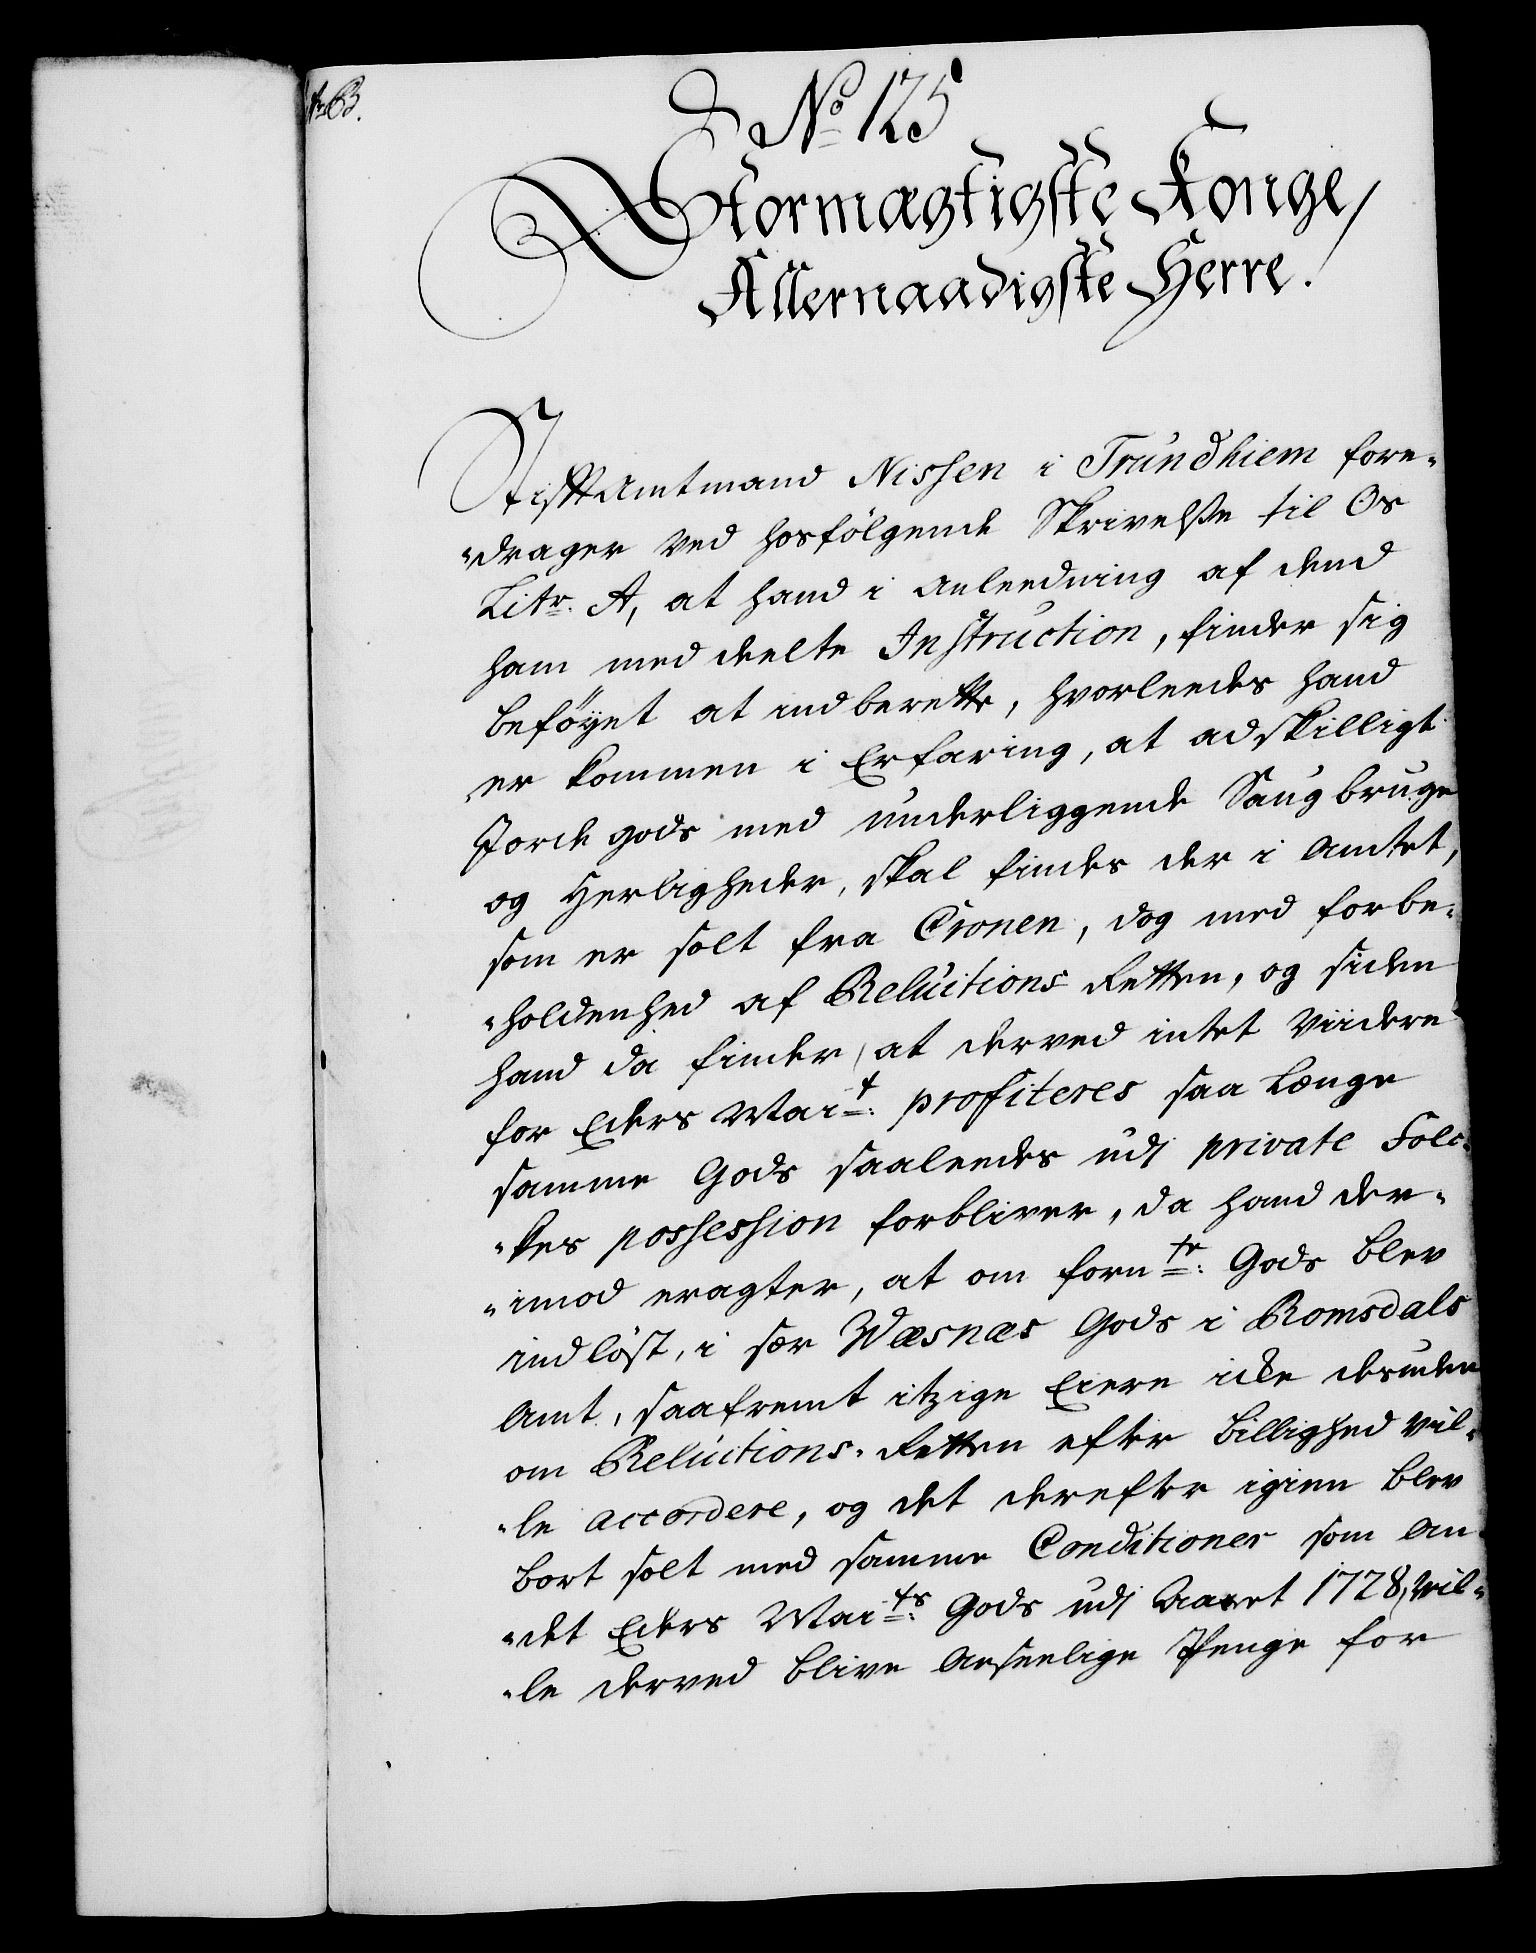 No 125
Stormægtigste Konge/
Allernaadigste Herre.
Stift Amtmand Nissen i Trundhiem fore-
-drager ved hosfölgende Skrivelsse til Os
Litr. A, at hand i anleedning af dend
ham med deelte Instruction, finder sig
beföyet at indberette, hvorleedes hand
er kommen i Erfaring, at adskilligt
Jordegods med underliggende Saugbruge
og Herligheder, skal findes der i Amtet,
som er solt fra Cronen, dog med forbe-
-holdenhed af Reluitions Retten, og siden
hand da finder, at derved intet viidere
for Eders Mait: profiteres saa længe
samme Gods saaleedes udj private Folc-
-kes possession forbliver, da hand der-
-imod eragter, at om fornte: Gods blev
indlöst, i sær Wæsnæs Gods i Romsdals
Amt, saafremt itzige Eiere icke desuden
om Reluitions-Retten efter billighed vil-
-le accordere, og det derefter igien blev
bort solt med samme Conditioner som an-
-det Eders Maits: Gods udj Aaret 1728, vil-
-le derved blive anseelige Penge for